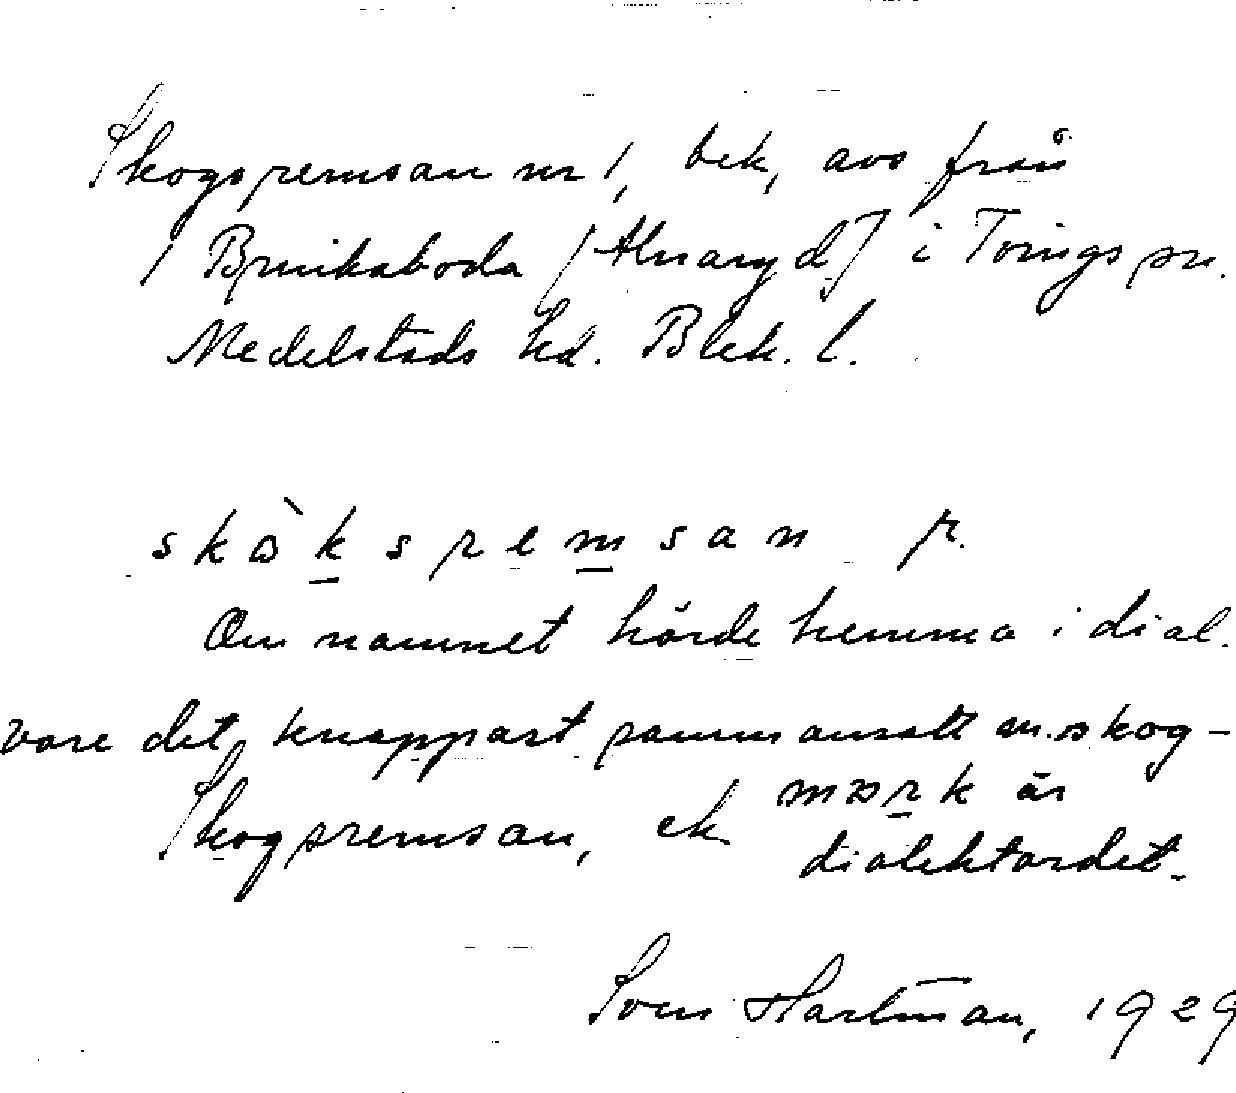 Skogsremsan nr 1, bek, avs från
1 Bruiksboda [Alnaryd] i Tvings sn.
Medelstads hd. Blek. l.
skɷ̀kspremsan r.
Om namnet hörde hemma i dial.
vore det knappast sammansatt m. skog-
mɷrk är
Skogsremsan, ek dialektordet.
Sven Hartman, 1929